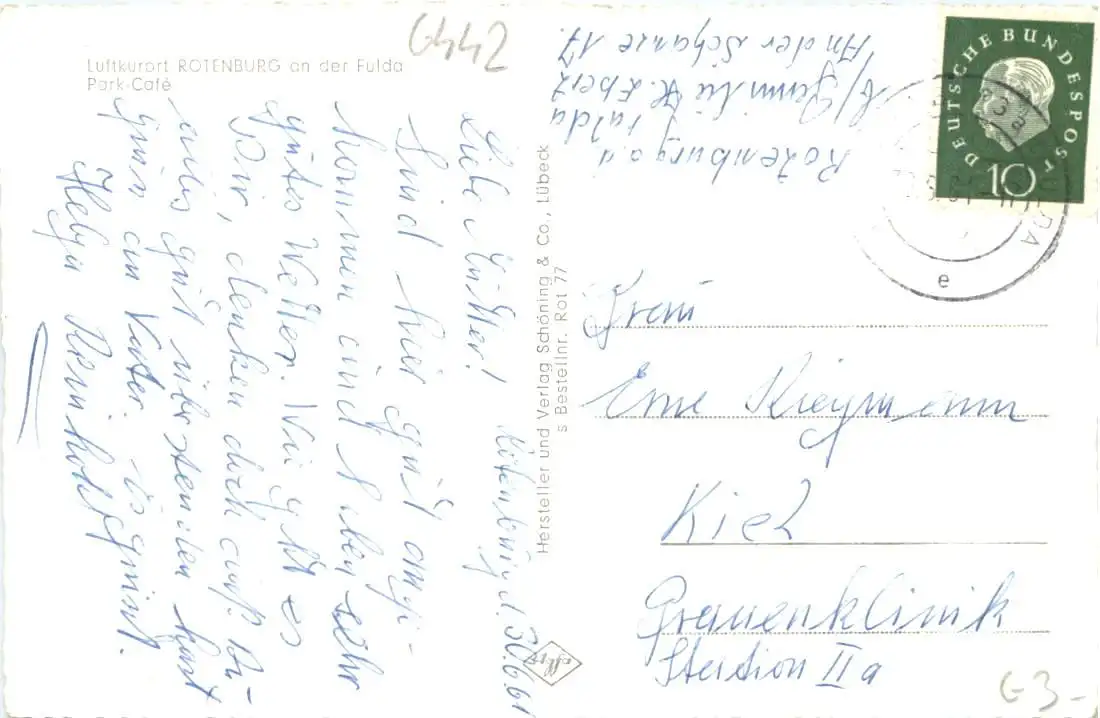 G442
Luftkurort ROTENBURG an der Fulda
Park-Café
Rotenburg d. 30.6.61
Liebe Mutter!
Sind hier gut ange-
kommen und haben sehr
gutes Wetter. Wie geht es
Dir, denken doch daß Du
alles gut überstanden hast
grüß an Vater. Es grüßt
Helga Reinhold
Hersteller und Verlag Schöning & Co., Lübeck
s Bestellnr. Rot 77
Rotenburg a. d.
Fulda
b/Familie H. Eberz
An der Schanze 17.
DEUTSCHE BUNDESPOST
10
e
Frau
Erne Kreymann
Kiel
Frauenklinik
Station IIa
G3-